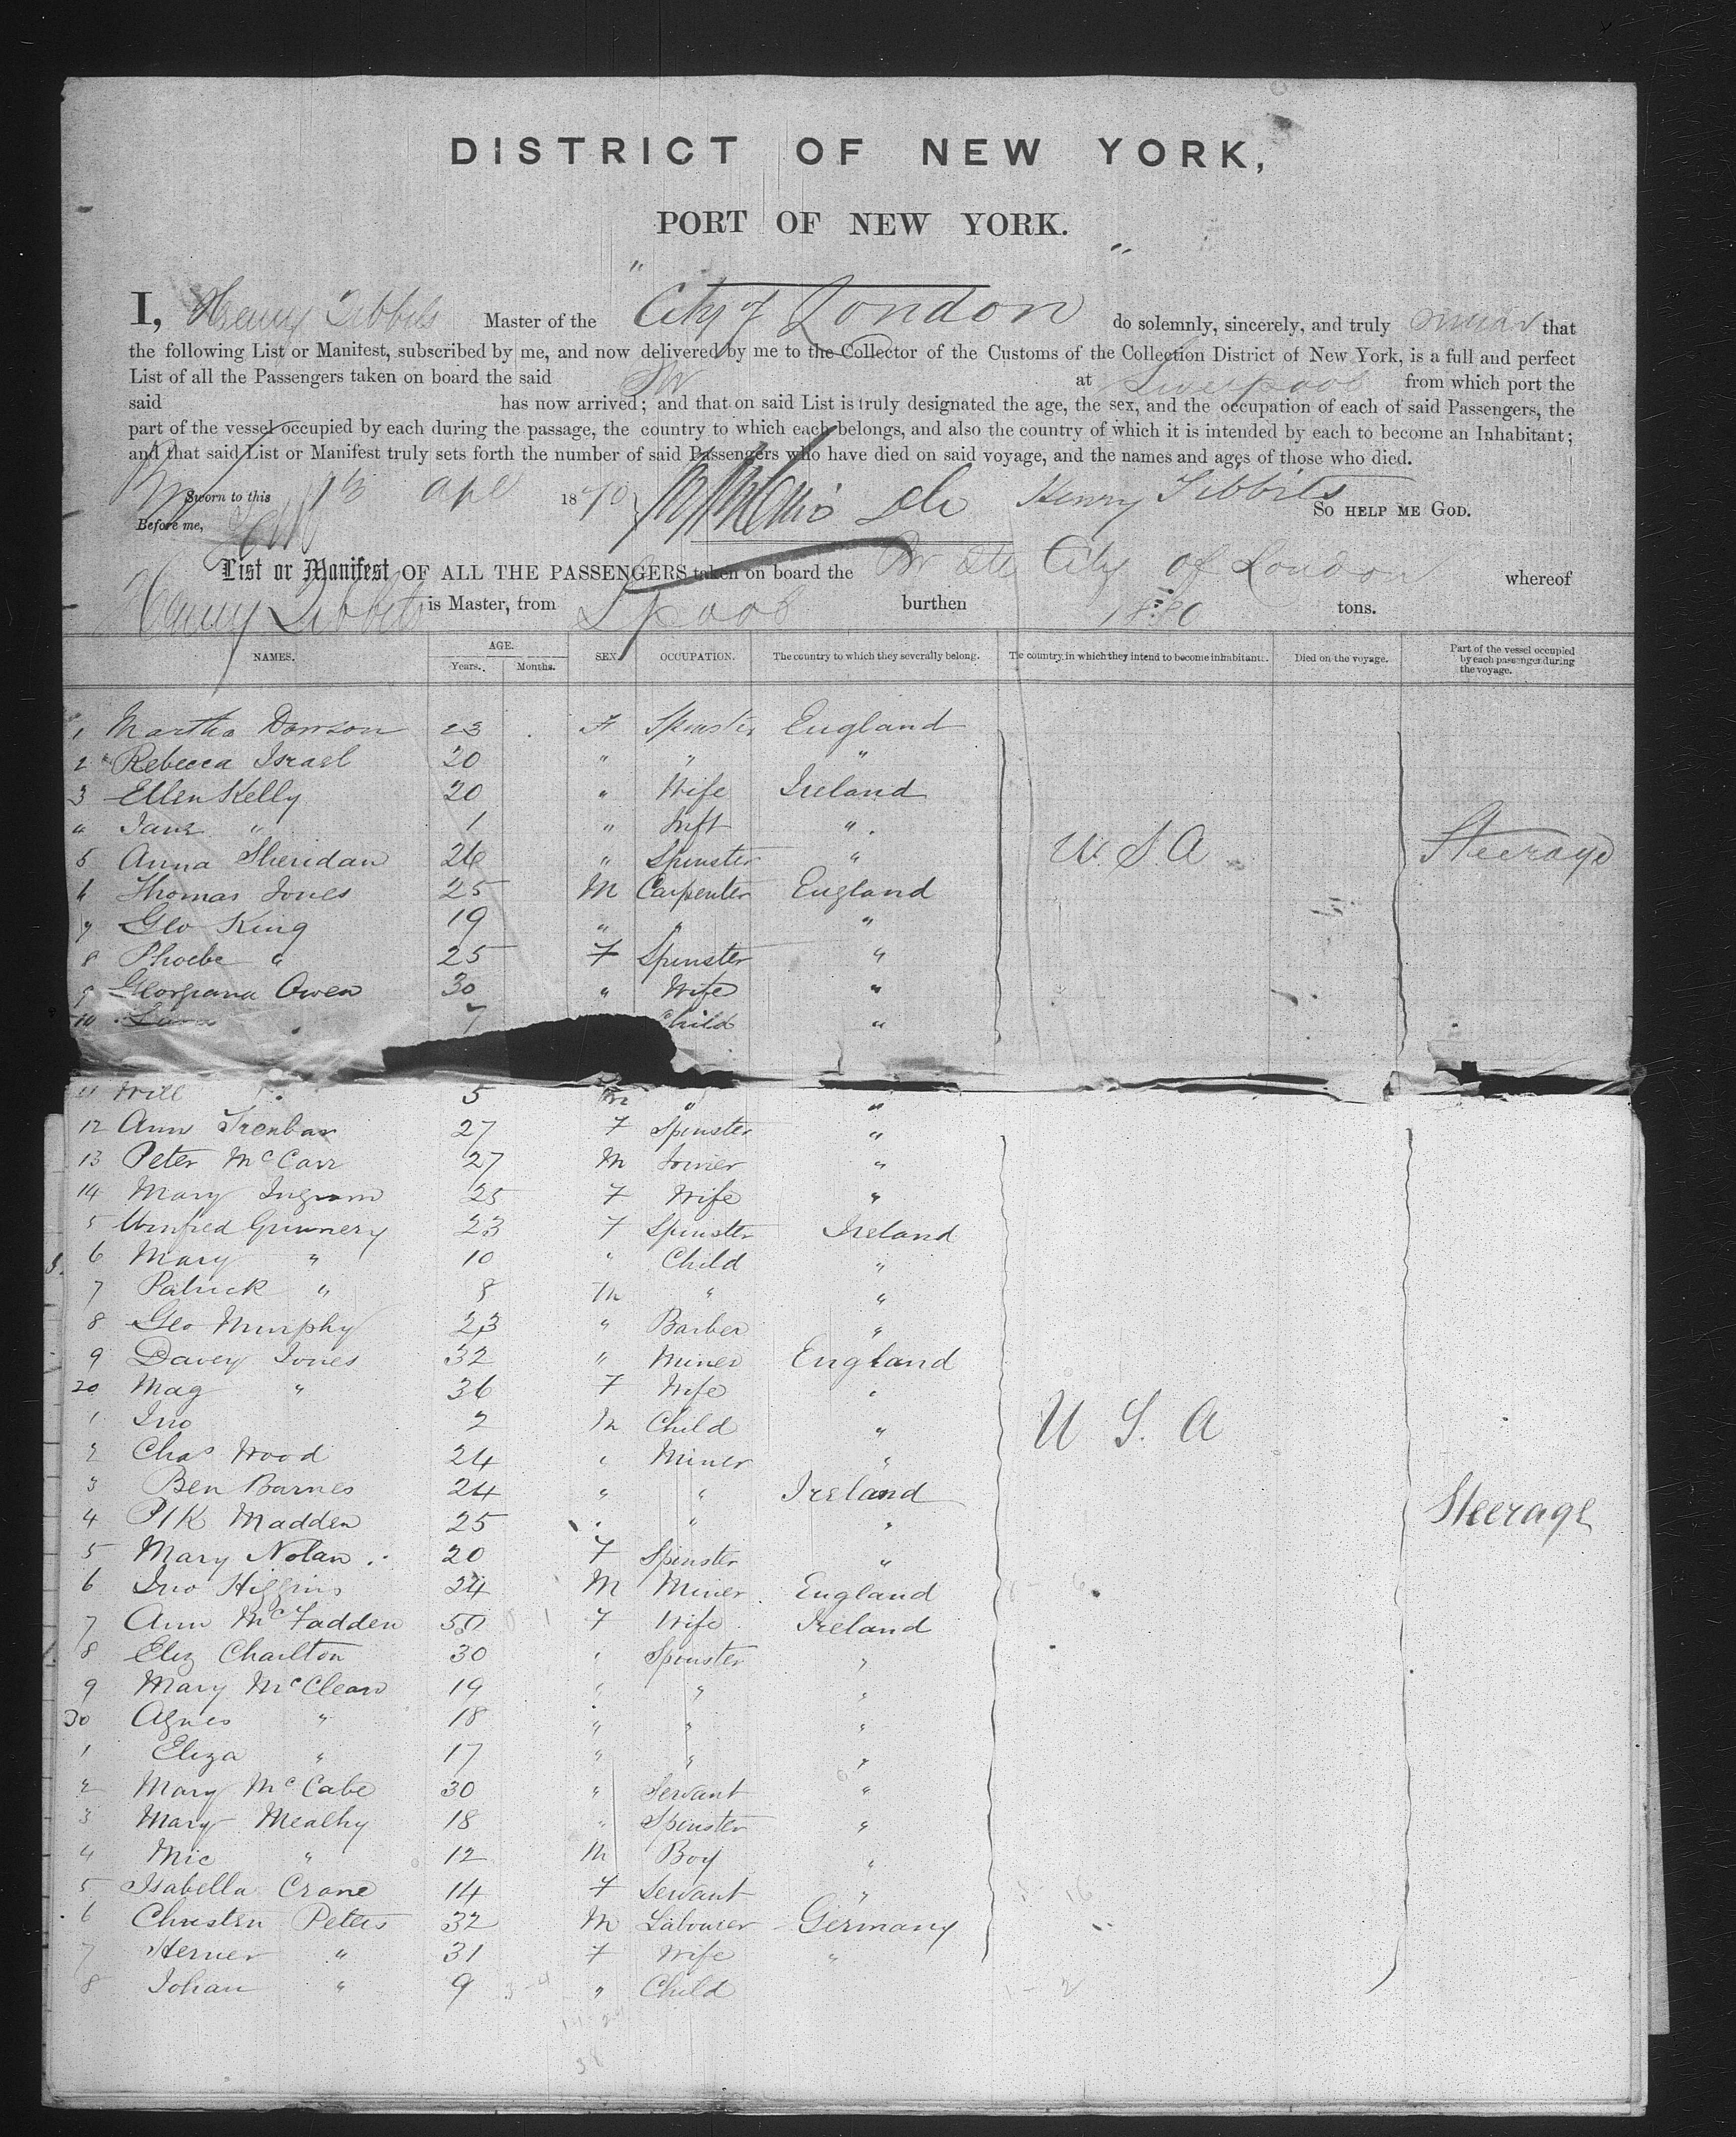 DISTRICT OF NEW YORK,
PORT OF NEW YORK.
I, Henry Tibbits Master of the City of London do solemnly, sincerely, and truly swear that
the following List or Manifest, subscribed by me, and now delivered by me to the Collector of the Customs of the Collection District of New York, is a full and perfect
List of all the Passengers taken on board the said at Liverpool from which port the
said has now arrived; and that on said List is truly designated the age, the sex, and the occupation of each of said Passengers, the
part of the vessel occupied by each during the passage, the country to which each belongs, and also the country of which it is intended by each to become an Inhabitant;
and that said List or Manifest truly sets forth the number of said Passengers who have died on said voyage, and the names and ages of those who died.
Sworn to this Apl 1870 Henry Tibbits
So HELP ME GOD.
Before me,
List or Manifest OF ALL THE PASSENGERS taken on board the Br City of London whereof
Henry Tibbits is Master, from Lpool burthen 1880 tons.
NAMES. AGE. Years. Months. SEX. OCCUPATION. The country to which they severally belong. The country in which they intend to become inhabitants. Died on the voyage. Part of the vessel occupied by each passenger during the voyage.
1 Martha Dawson 23 F Spinster England
2 Rebecca Israel 20 " " "
3 Ellen Kelly 20 " Wife Ireland
4 Jane " 1 " Inft "
5 Anna Sheridan 26 " Spinster " U.S.A Steerage
6 Thomas Jones 25 M Carpenter England
7 Geo King 19 " " "
8 Phoebe " 25 F Spinster "
9 Georgiana Owen 30 " Wife "
10 7 Child "
11 Will 5 M " "
12 Ann 27 F Spinster "
13 Peter McCarr 27 M Joiner "
14 Mary Ingram 25 F Wife "
5 Winifred Gunnery 23 F Spinster Ireland
6 Mary " 10 " Child "
7 Patrick " 8 M " "
8 Geo Murphy 23 " Barber "
9 Davey Jones 32 " Miner England
20 Mag " 36 F Wife "
1 Jno 2 M Child " U S. A
2 Chas Wood 24 " Miner "
3 Ben Barnes 24 " " Ireland
4 Ptk Madden 25 " " " Steerage
5 Mary Nolan 20 F Spinster "
6 Jno Higgins 24 M Miner England
7 Ann McFadden 50 F Wife Ireland
8 Eliz Charlton 30 " Spinster "
9 Mary McClean 19 " " "
30 Agnes " 18 " " "
1 Eliza " 17 " " "
2 Mary McCabe 30 " Servant "
3 Mary Mealhy 18 " Spinster "
4 Mic " 12 M Boy "
5 Isabella Crane 14 F Servant "
6 Christen Peters 32 M Labourer Germany
7 " 31 F Wife "
8 Johan " 9 " Child